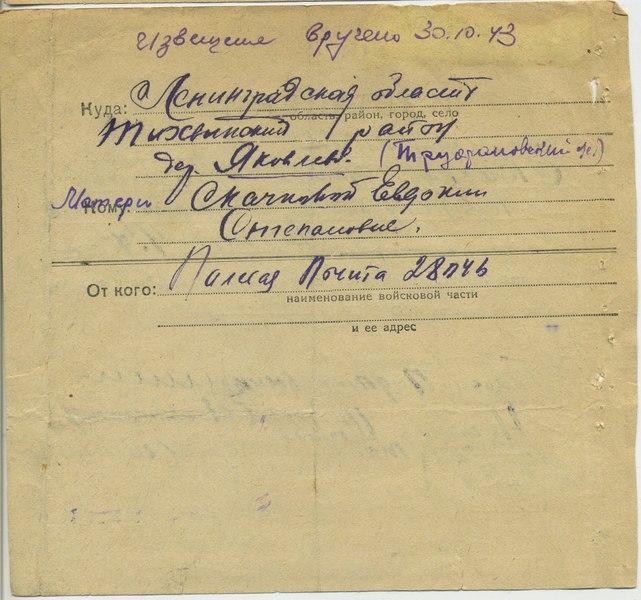 Извещение вручено 30.10.43
Куда: Ленинградская область
область, район, город, село
Тихвинский район
дер. Яковлев. (Трудрановский с/с)
Матери
Кому: Скачковой Евдокии
Степановне.
От кого: Полевая Почта 28046
наименование войсковой части
и ее адрес